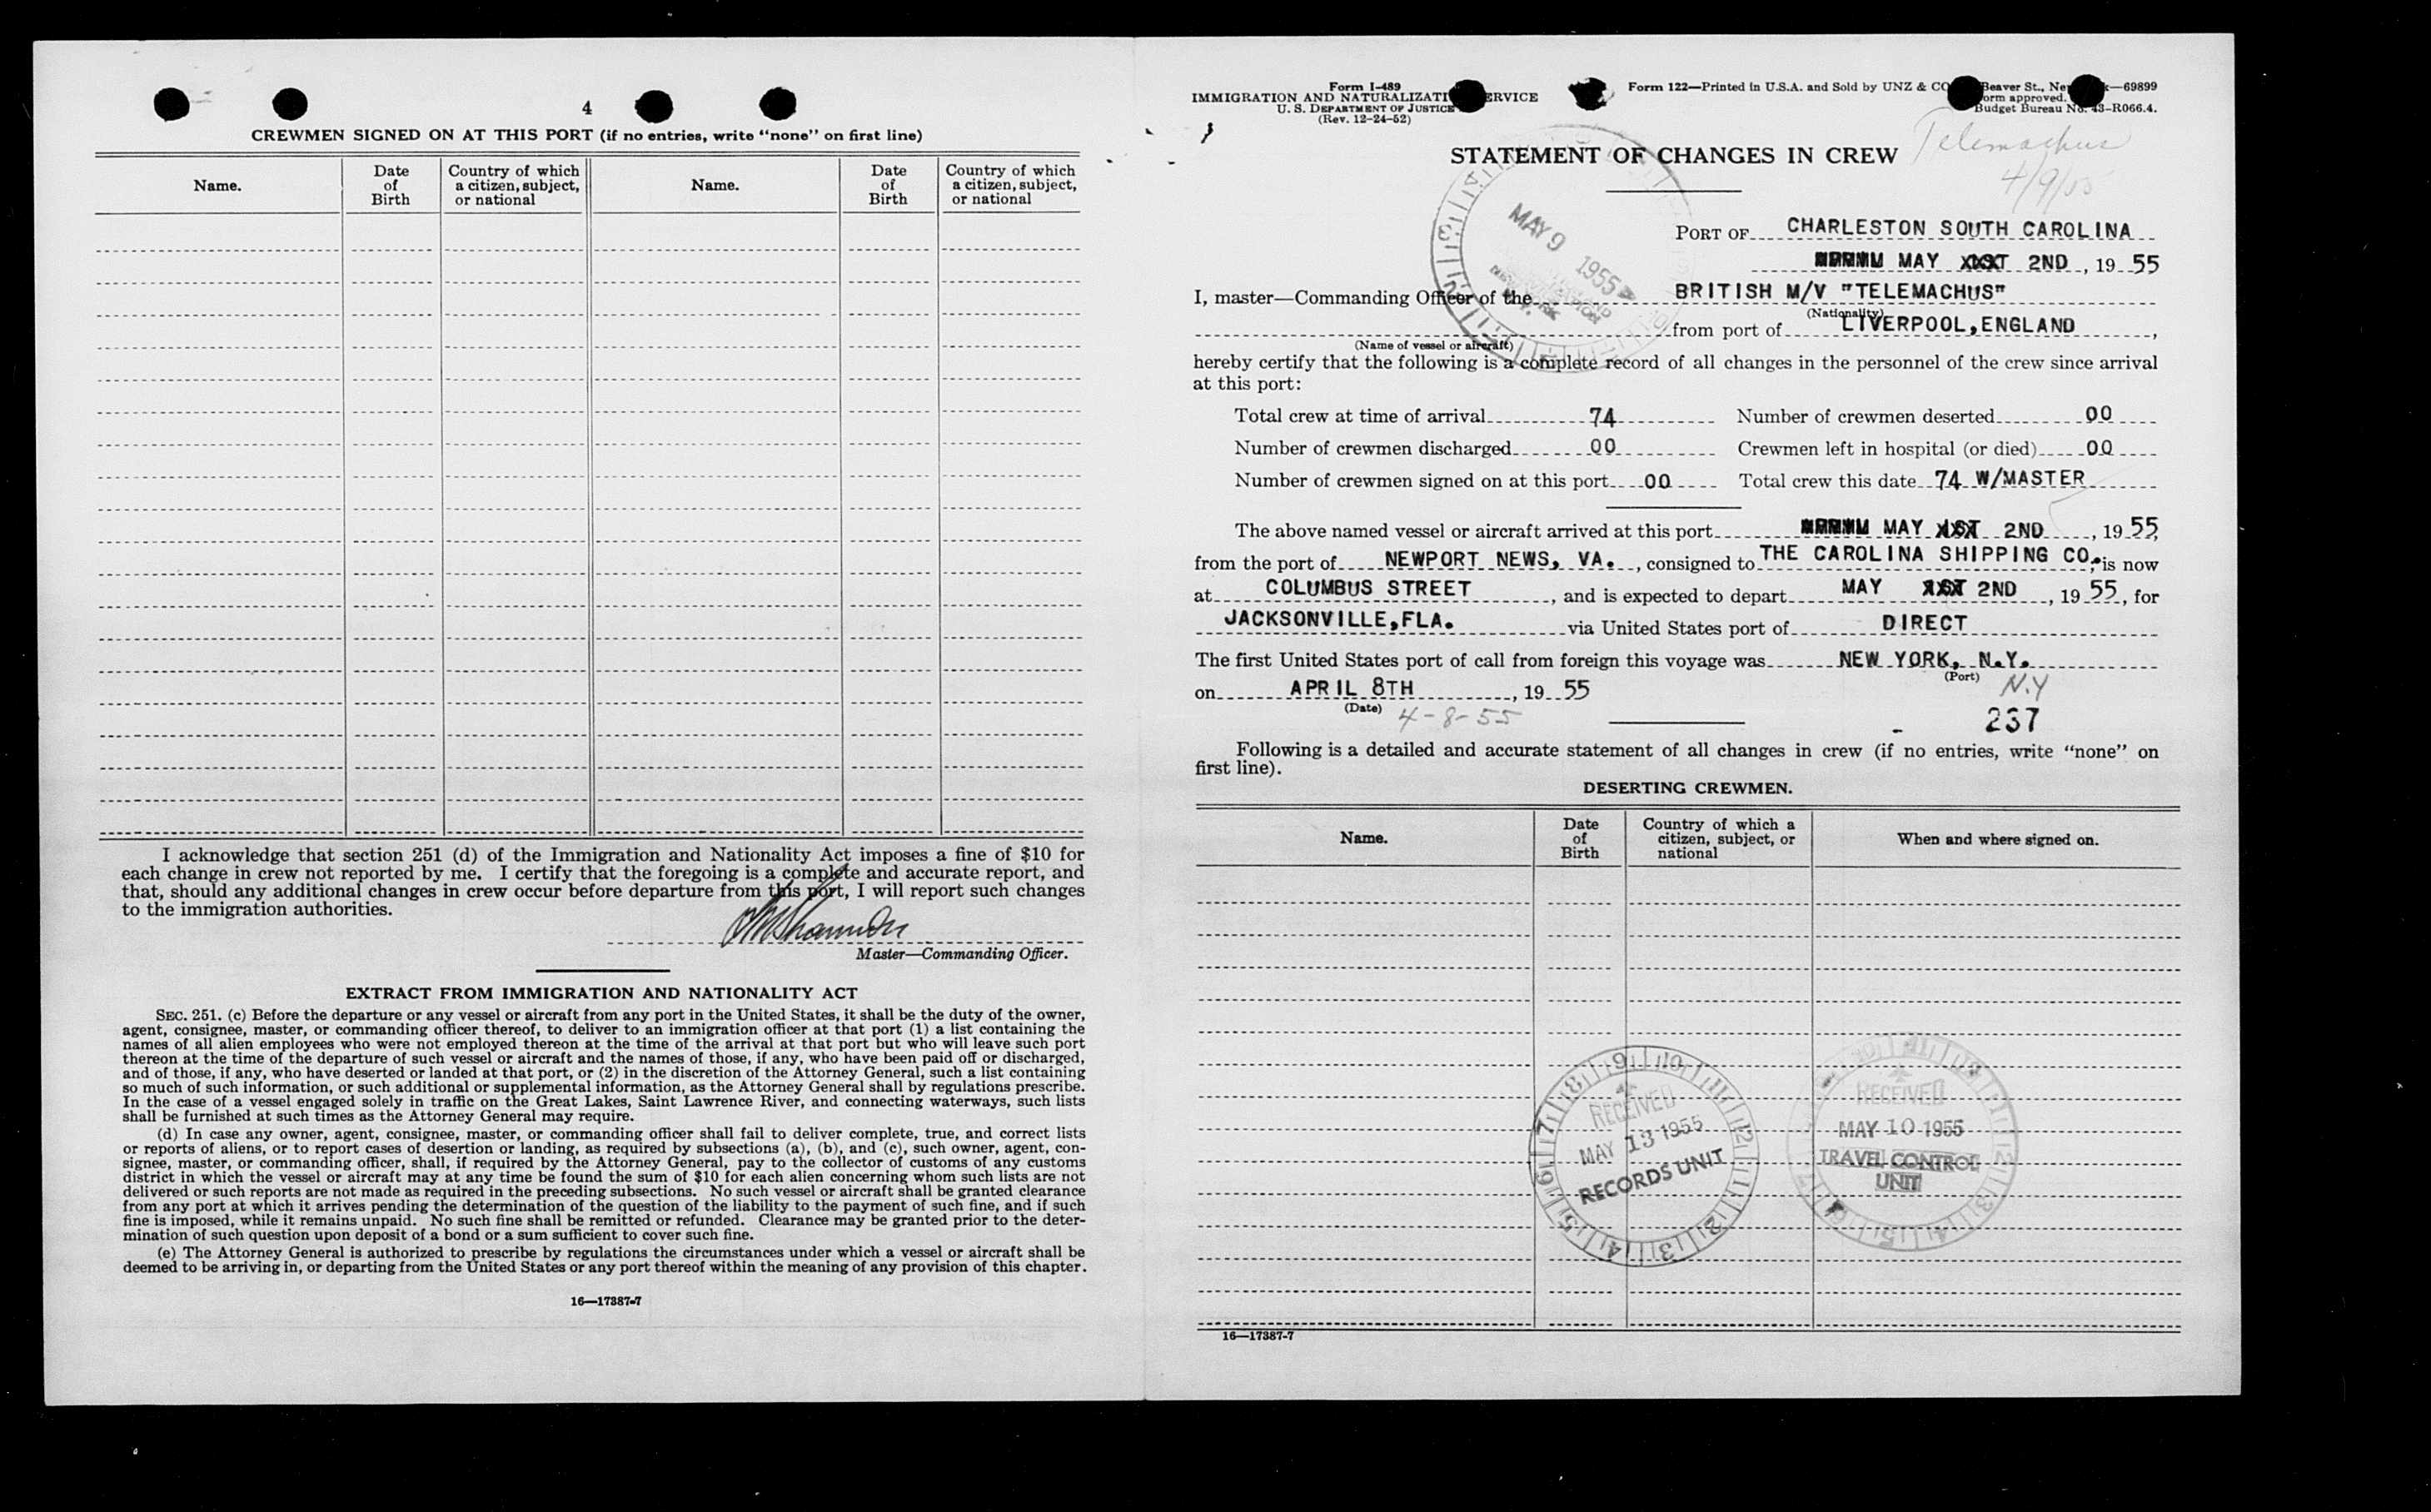 4
CREWMEN SIGNED ON AT THIS PORT (if no entries, write "none" on first line)
Name. Date of Birth Country of which a citizen, subject, or national Name. Date of Birth Country of which a citizen, subject, or national
I acknowledge that section 251 (d) of the Immigration and Nationality Act imposes a fine of $10 for
each change in crew not reported by me. I certify that the foregoing is a complete and accurate report, and
that, should any additional changes in crew occur before departure from this port, I will report such changes
to the immigration authorities.
Master—Commanding Officer.
EXTRACT FROM IMMIGRATION AND NATIONALITY ACT
SEC. 251. (c) Before the departure or any vessel or aircraft from any port in the United States, it shall be the duty of the owner,
agent, consignee, master, or commanding officer thereof, to deliver to an immigration officer at that port (1) a list containing the
names of all alien employees who were not employed thereon at the time of the arrival at that port but who will leave such port
thereon at the time of the departure of such vessel or aircraft and the names of those, if any, who have been paid off or discharged,
and of those, if any, who have deserted or landed at that port, or (2) in the discretion of the Attorney General, such a list containing
so much of such information, or such additional or supplemental information, as the Attorney General shall by regulations prescribe.
In the case of a vessel engaged solely in traffic on the Great Lakes, Saint Lawrence River, and connecting waterways, such lists
shall be furnished at such times as the Attorney General may require.
(d) In case any owner, agent, consignee, master, or commanding officer shall fail to deliver complete, true, and correct lists
or reports of aliens, or to report cases of desertion or landing, as required by subsections (a), (b), and (c), such owner, agent, con-
signee, master, or commanding officer, shall, if required by the Attorney General, pay to the collector of customs of any customs
district in which the vessel or aircraft may at any time be found the sum of $10 for each alien concerning whom such lists are not
delivered or such reports are not made as required in the preceding subsections. No such vessel or aircraft shall be granted clearance
from any port at which it arrives pending the determination of the question of the liability to the payment of such fine, and if such
fine is imposed, while it remains unpaid. No such fine shall be remitted or refunded. Clearance may be granted prior to the deter-
mination of such question upon deposit of a bond or a sum sufficient to cover such fine.
(e) The Attorney General is authorized to prescribe by regulations the circumstances under which a vessel or aircraft shall be
deemed to be arriving in, or departing from the United States or any port thereof within the meaning of any provision of this chapter.
16—17387-7
Form I-489
IMMIGRATION AND NATURALIZATI ERVICE
U. S. DEPARTMENT OF JUSTICE
(Rev. 12-24-52)
Form 122—Printed in U.S.A. and Sold by UNZ & CO Beaver St., Ne —69899
orm approved.
Budget Bureau No. 43-R066.4.
Telemachus
4/9/55
STATEMENT OF CHANGES IN CREW
MAY 9 1955
PORT OF CHARLESTON SOUTH CAROLINA
MAY 2ND, 19 55
I, master—Commanding Officer of the BRITISH M/V "TELEMACHUS"
(Nationality)
from port of LIVERPOOL, ENGLAND,
(Name of vessel or aircraft)
hereby certify that the following is a complete record of all changes in the personnel of the crew since arrival
at this port:
Total crew at time of arrival 74 Number of crewmen deserted 00
Number of crewmen discharged 00 Crewmen left in hospital (or died) 00
Number of crewmen signed on at this port 00 Total crew this date 74 W/MASTER
The above named vessel or aircraft arrived at this port MAY 2ND, 19 55,
from the port of NEWPORT NEWS, VA., consigned to THE CAROLINA SHIPPING CO., is now
at COLUMBUS STREET, and is expected to depart MAY 2ND, 19 55, for
JACKSONVILLE, FLA. via United States port of DIRECT
The first United States port of call from foreign this voyage was NEW YORK, N.Y.
(Port)
on APRIL 8TH, 19 55
(Date)
4-8-55
N.Y
237
Following is a detailed and accurate statement of all changes in crew (if no entries, write "none" on
first line).
DESERTING CREWMEN.
Name. Date of Birth Country of which a citizen, subject, or national When and where signed on.
RECEIVED
MAY 13 1955
RECORDS UNIT
RECEIVED
MAY 10 1955
TRAVEL CONTROL
UNIT
16—17387-7